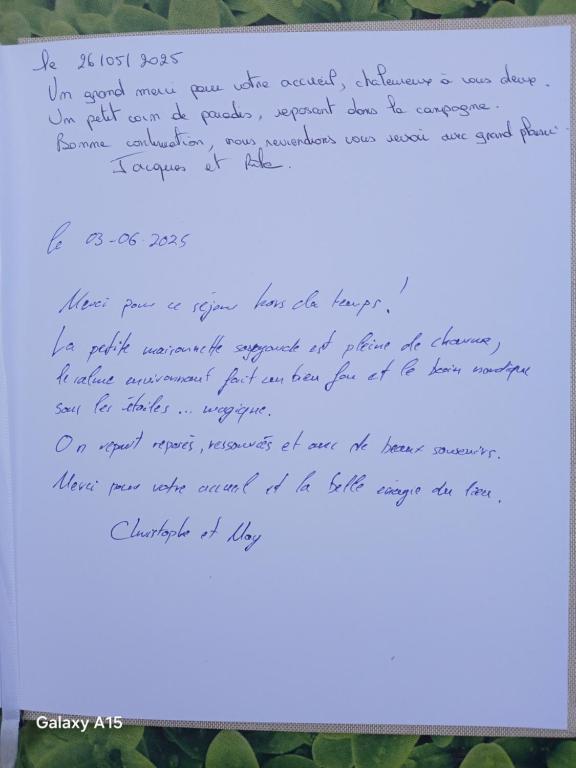 le 26/05/2025
Un grand merci pour votre accueil, chaleureux à vous deux.
Un petit coin de paradis, reposant dans la campagne.
Bonne continuation, nous reviendrons vous revoir avec grand plaisir.
Jacques et
le 03-06-2025
Merci pour ce séjour hors du temps !
La petite maisonnette est pleine de charme,
le calme environnant fait un bien fou et le bain nordique
sous les étoiles ... magique.
On repart reposés, ressourcés et avec de beaux souvenirs.
Merci pour votre accueil et la belle énergie du lieu.
Christophe et May
Galaxy A15